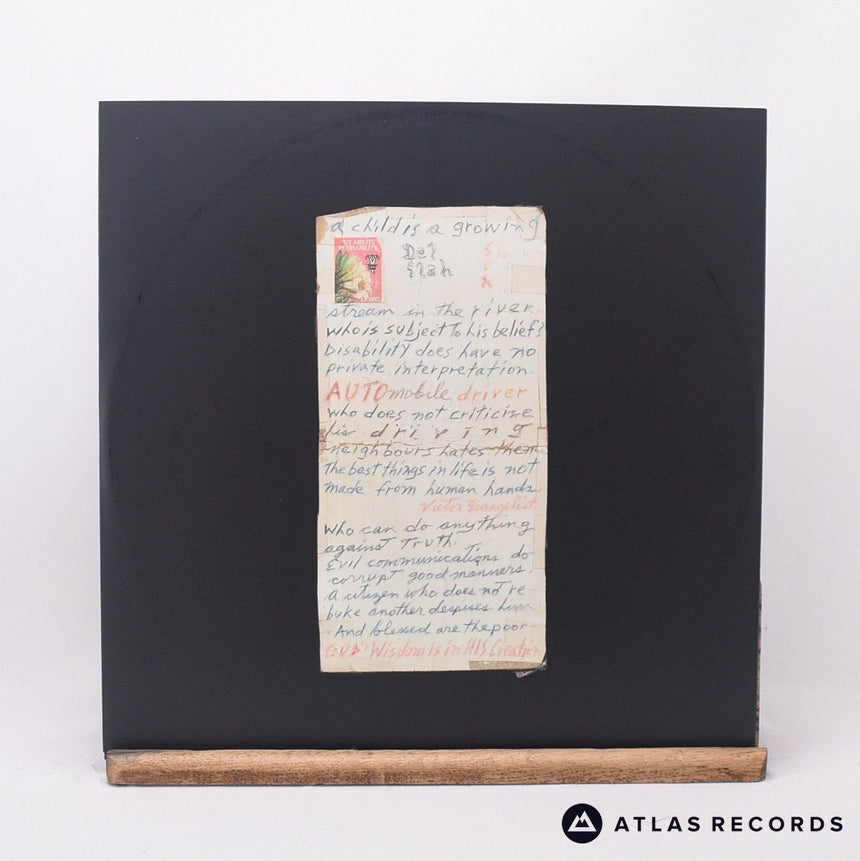 a child is a growing
ABILITY
DISABILITY
Del
Elah
stream in the river
who is subject to his belief?
Disability does have no
private interpretation.
AUTOmobile driver
who does not criticize
his driving
neighbours hates them
The best things in life is not
made from human hands
Victor Evangelist
Who can do anything
against Truth.
Evil communications do
corrupt good manners.
a citizen who does not re
buke another despises him
And blessed are the poor
Wisdom is in His Creation
ATLAS RECORDS